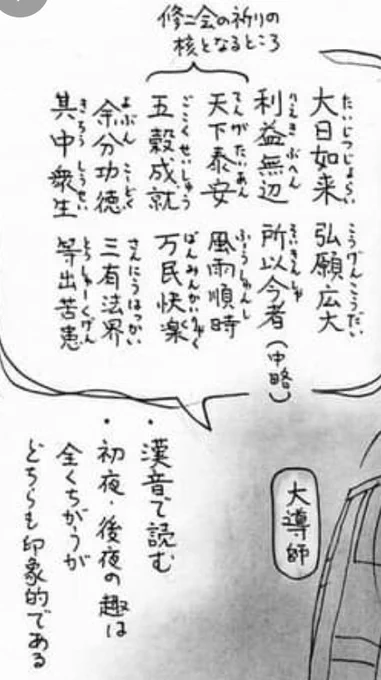 修二会の祈りの
核となるところ
大日如来 弘願広大
たいじつじょらい こうげんこうだい
利益無辺 所以今者(中略)
りえきぶへん
天下泰安 風雨順時
てんがたいあん ふうう
五穀成就 万民快楽
ごこくせいしゅう ばんみんかい
余分功徳 三有法界
よぶん さんにうはっかい
其中衆生 等出苦患
大導師
・漢音で読む
・初夜・後夜の趣は
全くちがうが
どちらも印象的である